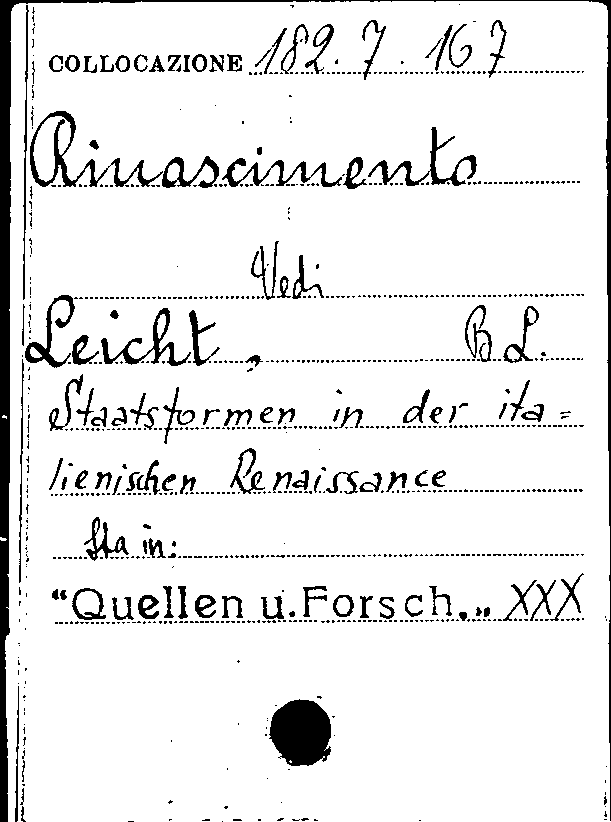 COLLOCAZIONE 182.7.167
Rinascimento
Vedi
Leicht, B L.
Staatsformen in der ita=
lienischen Renaissance
Sta in:
"Quellen u. Forsch.„ XXX